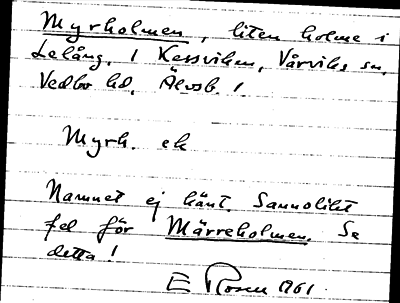 Myrholmen, liten holme i
Lelång, i Kessviken, Vårviks sn,
Vedbo hd, Älvsb. l.
Myrh. ek
Namnet ej känt. Sannolikt
fel för Märreholmen. Se
detta!
E Rosen 1961.